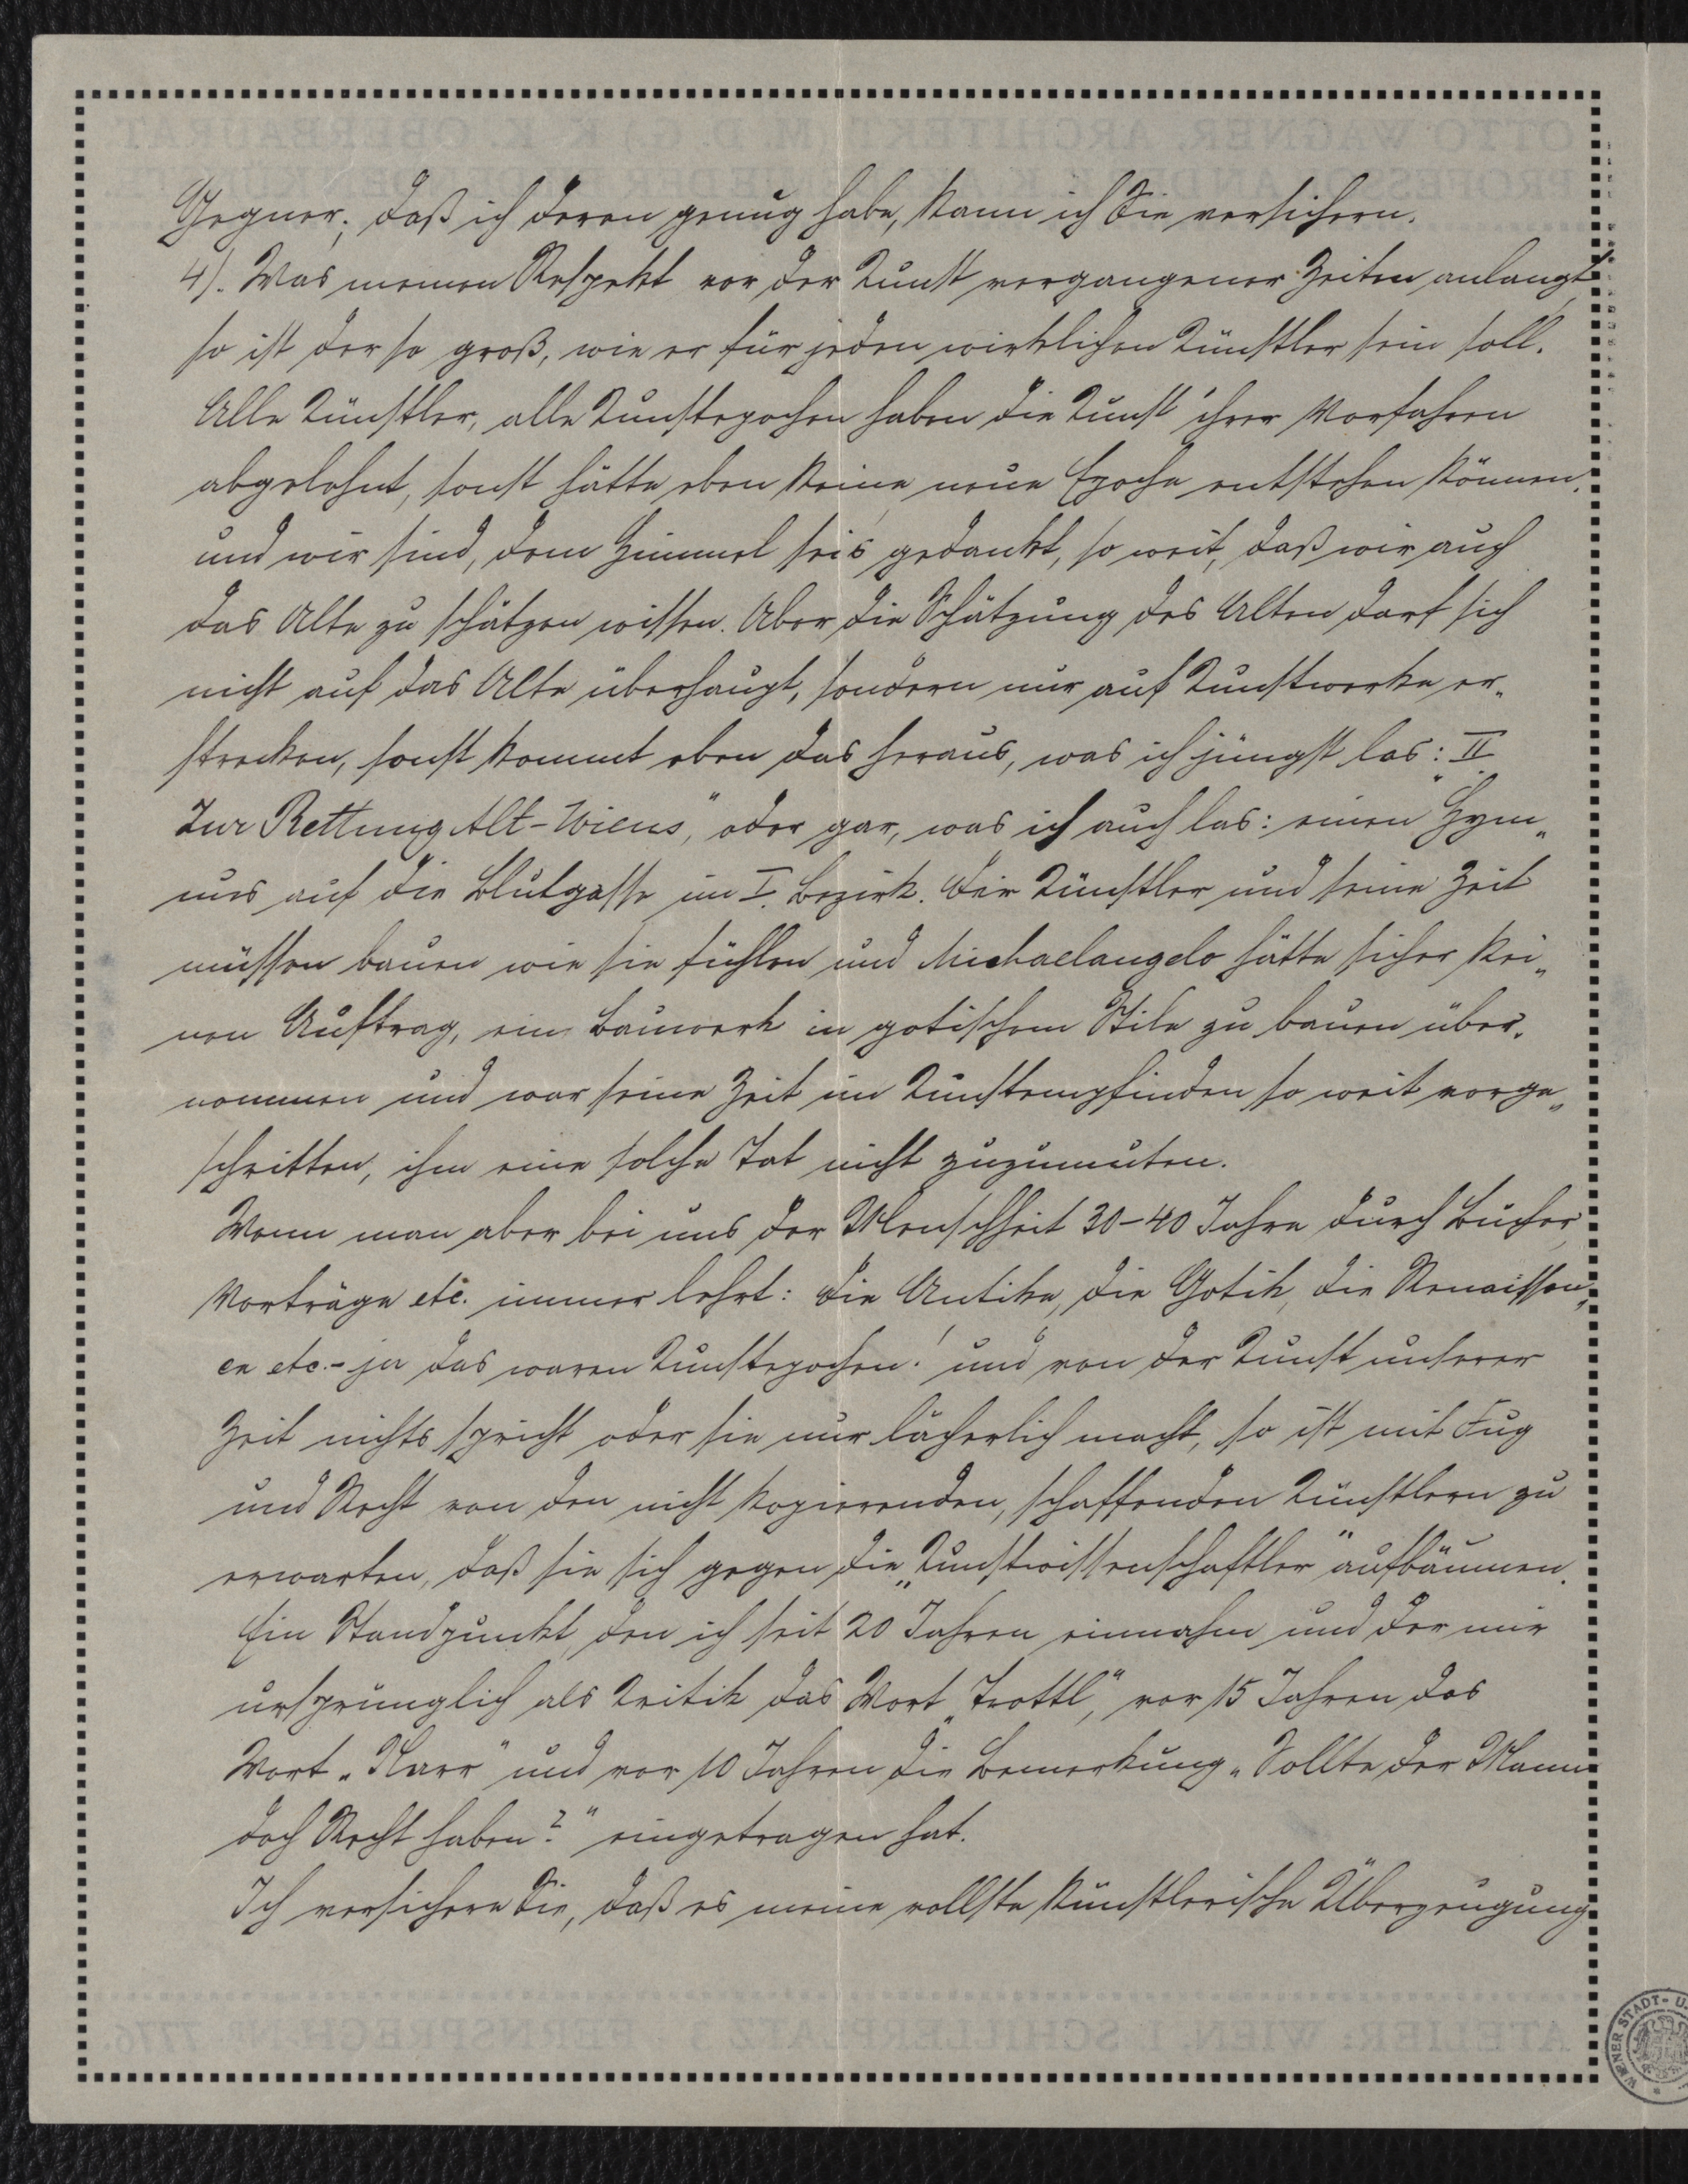 Gegner; daß ich deren genug habe, kann ich Sie versichern.
4). Was meinen Respekt vor der Kunst vergangener Zeiten anlangt,
so ist der so groß, wie er für jeden wirklichen Künstler sein soll.
Alle Künstler, alle Kunstepochen haben die Kunst ihrer Vorfahren
abgelehnt, sonst hätte eben keine neue Epoche entstehen können,
und wir sind, dem Himmel sei's gedankt, so weit, daß wir auch
das Alte zu schätzen wissen. Aber die Schätzung des Alten darf sich
nicht auf das Alte überhaupt, sondern nur auf Kunstwerke er-
strecken, sonst kommt eben das heraus, was ich jüngst las: "II
Zur Rettung Alt-Wiens", oder gar, was ich auch las: einen Hym„
nus auf die Blutgasse im I. Bezirk. Die Künstler und seine Zeit
müssen bauen wie sie fühlen und Michaelangelo hätte sicher kei„
nen Auftrag, ein Bauwerk in gotischem Stile zu bauen über-
nommen und war seine Zeit im Kunstempfinden so weit vorge„
schritten, ihm eine solche Tat nicht zuzumuten.
Wenn man aber bei uns der Menschheit 30-40 Jahre durch Bücher,
Vorträge etc. immer lehrt: die Antike, die Gotik, die Renaissan„
ce etc.- ja das waren Kunstepochen! und von der Kunst unserer
Zeit nichts spricht oder sie nur lächerlich macht, so ist mit Fug
und Recht von den nicht kopierenden, schaffenden Künstlern zu
erwarten, daß sie sich gegen die „Kunstwissenschaftler" aufbäumen.
Ein Standpunkt, den ich seit 20 Jahren einnahm und der mir
ursprünglich als Kritik das Wort „Trottl", vor 15 Jahren das
Wort „Narr" und vor 10 Jahren die Bemerkung „Sollte der Mann
doch Recht haben?" eingetragen hat.
Ich versichere Sie, daß es meine vollste künstlerische Überzeugung
WIENER STADT- U.